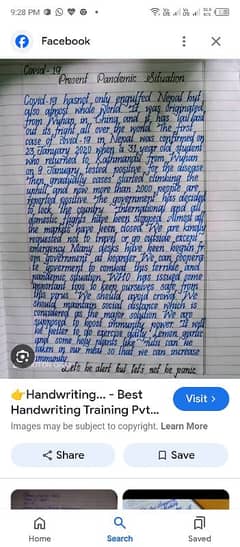 9:28 PM
Facebook
Covid-19
Present Pandemic situation
Covid-19 hasnot only engulfed Nepal but
also almost whole world. It was originated
from Wuhan in China and it has
out its fright all over the world. The first
case of covid-19 in Nepal was confirmed on
23 January 2020 when a 31 year old student
who returned to Kathmandu from Wuhan
on 9 January, tested positive for the disease
Then, gradually cases started climbing the
uphill and now more than 2000 people are
reported positive. The government has decided
to lock the country. International and all
domestic flights have been stopped. Almost all
the markets have been closed. We are kindly
requested not to travel or go outside except
emergency. Many desks have been kept
government
government to combat this terrible and
pandemic situation. WHO has issued some
important tips to keep ourselves safe from
this virus. We should avoid crowd. We
should maintain social distance which is
considered as the major solution. We are
supposed to boost immunity power. It will
be better to go exercise daily. Lemon, garlic
and some help plants like can be
taken in our meal so that we can increase
immunity.
Let's be alert but let's not be panic.
👉Handwriting... - Best
Handwriting Training Pvt...
Visit >
Images may be subject to copyright. Learn More
Share
Save
Home
Search
Saved